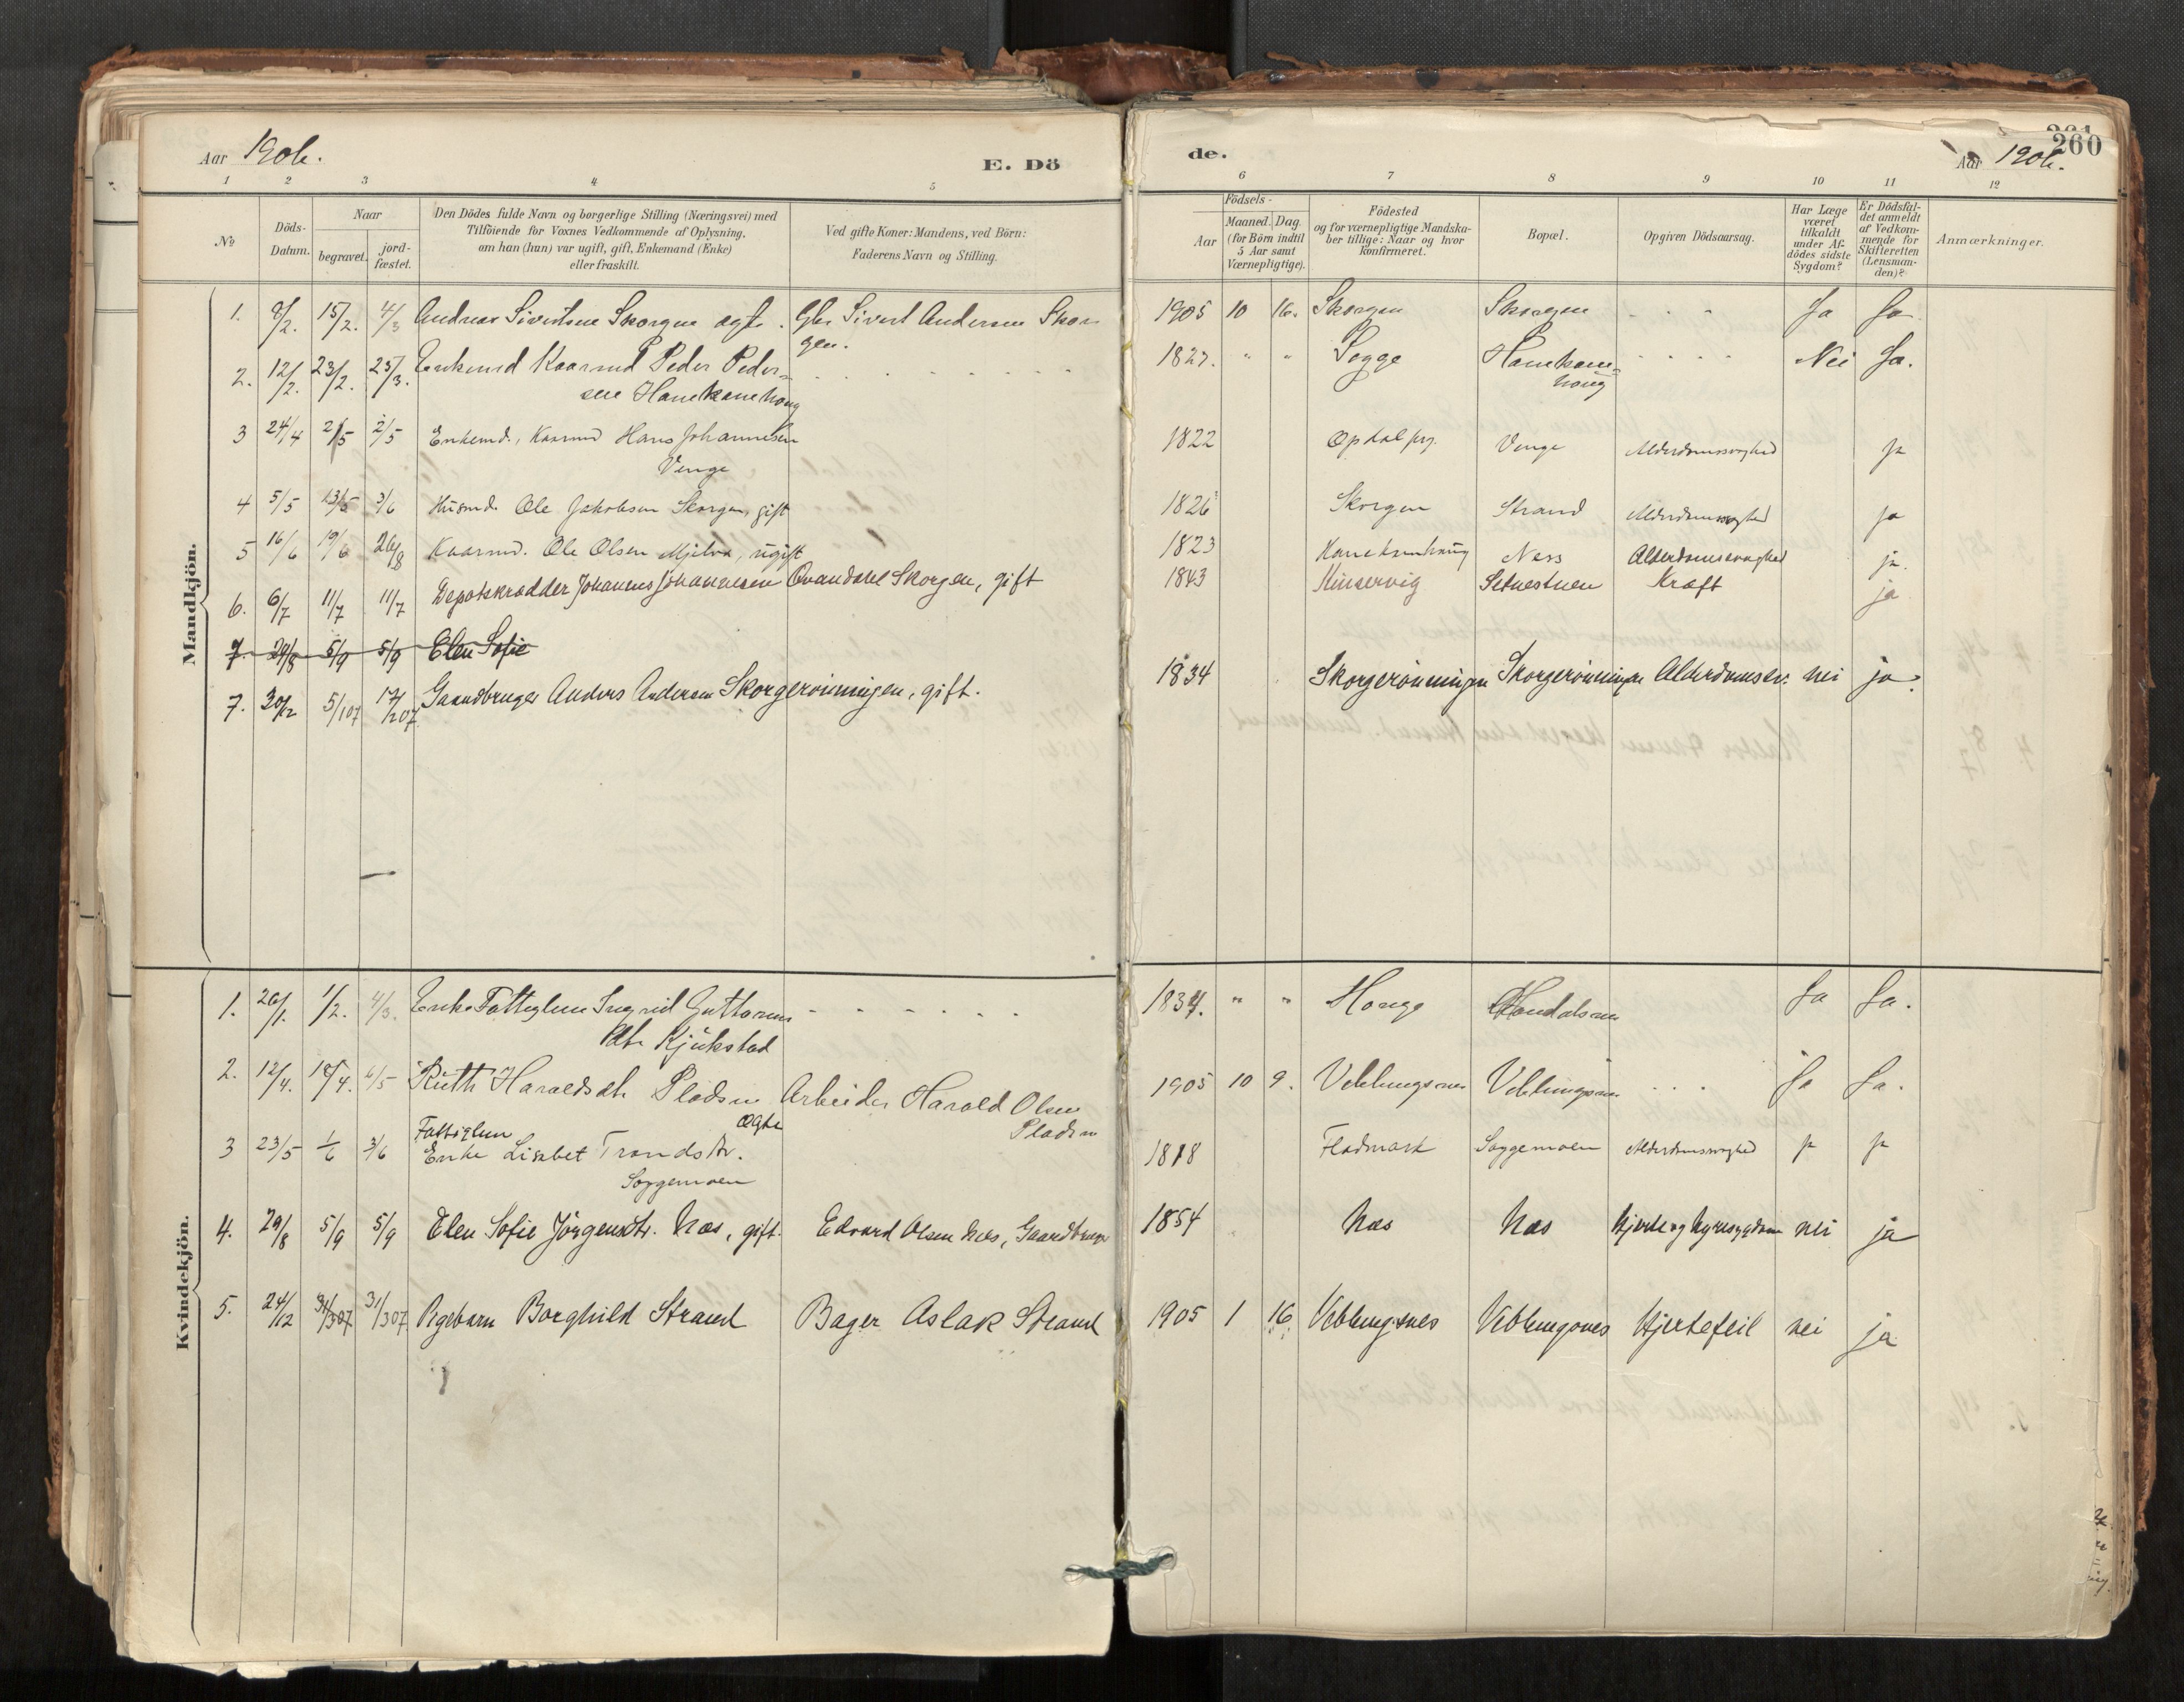 Aar 1906.
E. Dö
de.
260
Aar 1906.
1 2 3 4 5 6 7 8 9 10 11 12
No
Döds-Datum.
Naar
begravet.
jord-fæstet.
Den Dödes fulde Navn og borgerlige Stilling (Næringsvei) med
Tilföiende for Voxnes Vedkommende af Oplysning,
om han (hun) var ugift, gift, Enkemand (Enke)
eller fraskilt.
Ved gifte Koner: Mandens, ved Börn:
Faderens Navn og Stilling.
Födsels-
Aar
Maaned. Dag.
(for Börn indtil
5 Aar samt
Værnepligtige).
Födested
og for værnepligtige Mandska-
ber tillige: Naar og hvor
konfirmeret.
Bopæl.
Opgiven Dödsaarsag.
Har Læge
været
tilkaldt
under Af-
dödes sidste
Sygdom?
Er Dödsfal-
det anmeldt
af Vedkom-
mende for
Skifteretten
(Lensman-
den)?
Anmærkninger.
Mandkjön.
1. 8/2. 15/2. 4/3 Andreas Sivertsen Skorgen ægte. Gbr Sivert Andersen Skor 1905 10 16. Skorgen Skorgen Ja Ja
gen.
2. 12/2. 23/2. 25/3. Enkemd Kaarmd Peder Peder- 1827. " " Sogge Hanekam- Nei Ja.
sen Hanekamhoug houg
3 24/4 2/5 2/5 Enkemd., Kaarmd Hans Johannesen 1822 Opdal prg. Venge Alderdomssvaghed ja
Venge
4 5/5 13/5 3/6 Husmd. Ole Jakobsen Skorgen, gift 1826 Skorgen Strand Alderdomssvaghed ja
5 16/6 19/6 26/8 Kaarmd. Ole Olsen Mjelva, ugift 1823 Hanekamhaug Ness Alderdomssvaghed ja.
6. 6/7 11/7 11/7 Depotskrædder Johannes Johannesen Qvandahl Skorgen, gift 1843 Kinservig Setnestuen Kræft ja
7. 29/8 5/9 5/9 Elen Sofie
7. 30/12 5/107 17/207 Gaardbruger Anders Andersen Skorgerönningen, gift. 1834 Skorgerönningen Skorgerönningen Alderdomssv. nei ja.
Kvindekjön.
1. 26/1. 1/2. 4/3. Enke Fattiglem Ingrid Guttorms 1834. " " Houge Ja Ja.
dtr Kjukstad
2. 12/4. 18/4. 6/5 Ruth Haraldsdtr Pladsen Arbeider Harald Olsen 1905 10 9. Veblungsnes Veblungsnes Ja Ja.
ægte Pladsen
3 23/5 1/6 3/6 Fattiglem
Enke Lisbet Trondsdtr. 1818 Fladmark Soggemoen Alderdomssvaghed ja ja
Soggemoen
4. 29/8 5/9 5/9 Elen Sofie Jörgensdtr. Næs, gift. Edvard Olsen Næs, Gaardbruger 1854 Næs Næs Hjerte og Nyresygdom nei ja
5. 24/12 31/307 31/307 Pigebarn Borghild Strand Bager Aslak Strand 1905 1 16 Veblungsnes Veblungsnes Hjertefeil nei ja